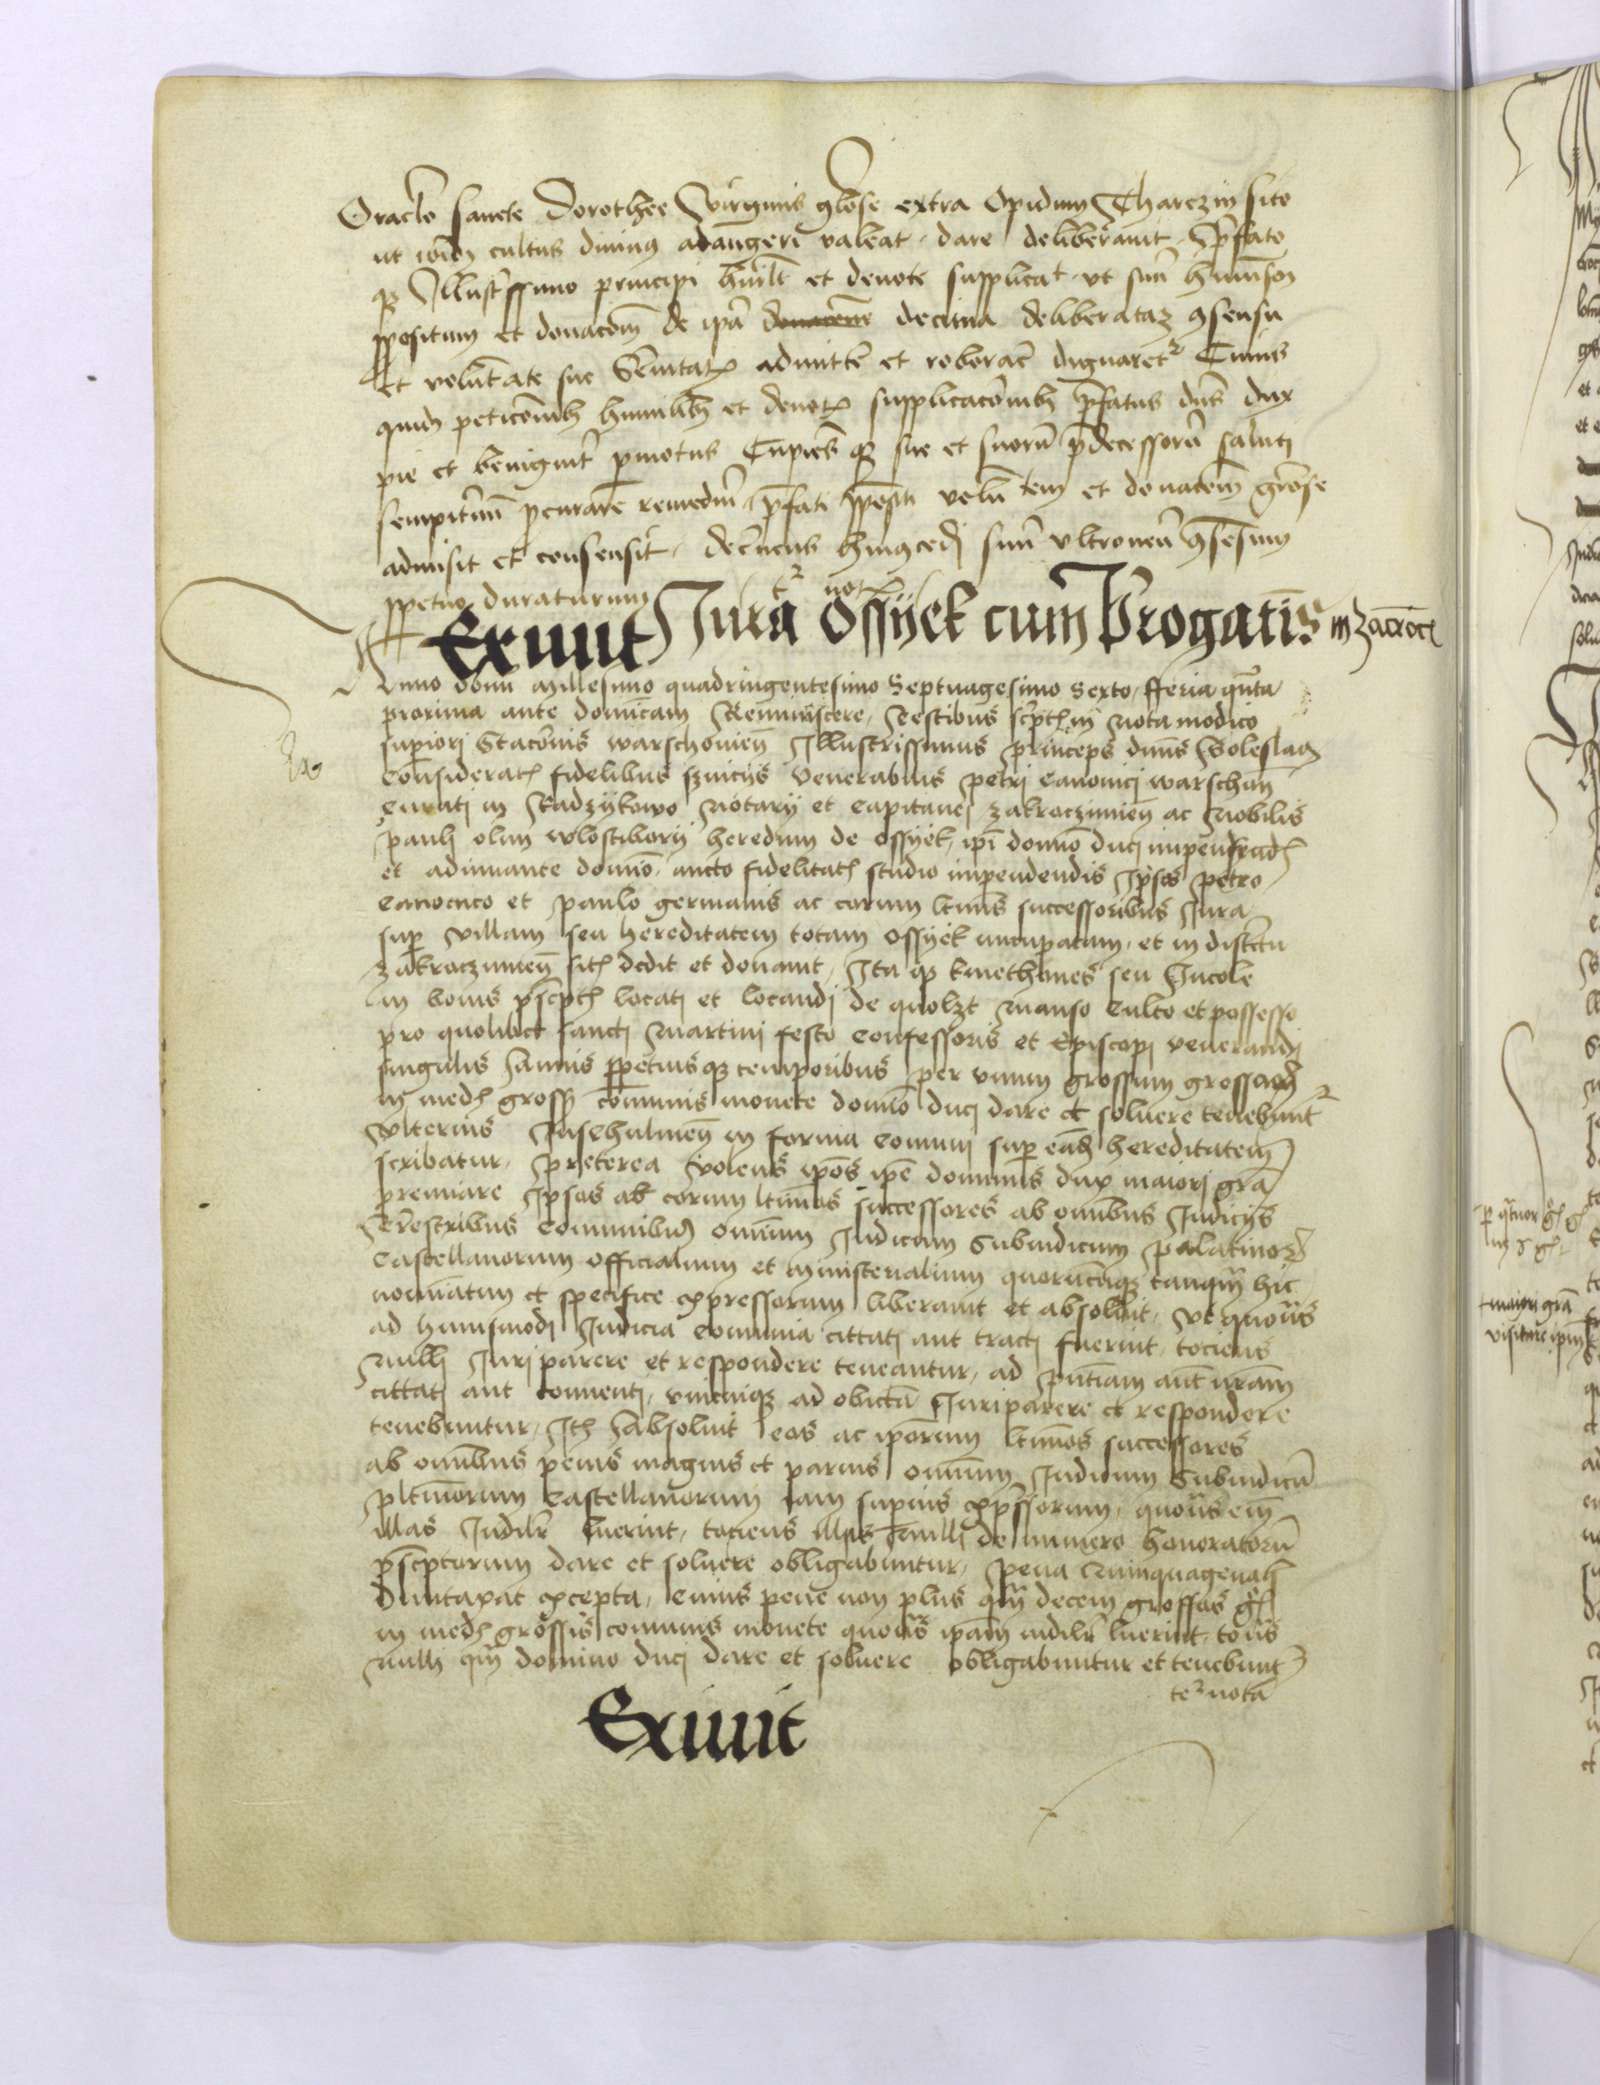 Oraclo sancte Dorothee Virginis gl̄ose extra Opidum Tharczin sito
ut ibidē cultus diuinus adaugeri valeat dare deliberauit p̄fato
q̨ Illustrissimo principi hūilt̄ et deuote supplicat ut suū hm̄oi
p̄positum et donacōm de ip̄a decima deliberataȝ ꝯsensu
Et volūtate sue admittē et roborare dignaret Cuius
quidē peticōnibȝ humilibȝ et deuotꝭ supplicacōnibȝ p̄fatus dn̄s dux
pie et benignit̄ ꝑmotus Cupies q̨ sue et suorū p̄decessorū saluti
sempit̄nū ꝓcurare remediū p̄fati p̄positi volūtem et donacōem gr̄ose
admisit et consensit decernens suū vltroneū ꝯsensum
ꝑpetuo duraturum
Exiuit Jura Ossyek cum Prerogatiuis in Zacrocz
Anno domī Millesimo quadringentesimo Septuagesimo Sexto fferia qūta
proxima ante domīcam Reminiscere Testibus sc̄ptꝭ in Nota modico
supiori Stacōnis warschouien̄ Illustrissimus princeps dn̄s Boleslaꝰ
Consideratꝭ fidelibus Seruicijs Venerabilis petri Canonici warschauien̄
Curati in Radzykowo Notarij et Capitanei zakroczimien̄ ac Nobilis
pauli olim wlostiborij heredum de Ossyek ip̄i domīo duci impensis
et adiuuante domīo aucto fidelitatꝭ studio impendendis Ip̄is petro
Canonico et paulo germanis ac eorum ltīmis successoribus Jura
suꝑ villam seu hereditatem totam Ossyek nuncupatam et in districtu
zakroczimien̄ sitā dedit et donauit Ita q̨ kmethones seu Incole
in bonis p̄sc̄ptꝭ locati et locandi de quolȝt Manso Culto et possesso
pro quolibet sancti Martini festo Confessoris et Episcopi venerandi
singulis annis ꝑpetuisq̨ temporibus per vnum grossum grossorū
in medꝭ grossꝭ cōmunis monete domīo duci dare et soluere tenebūtur
Vlterius Jus Chulmen̄ in forma Comuni suꝑ eādē hereditatem
scribatur Preterea Volens ip̄os ip̄e dominus dux maiori gr̄a
premiare Ipsos ab eorum ltīmos successores ab omnibus Judicijs
Terrestribus Communibus omniūm Judicum Subiudicum palatinorꝝ
Castellanorum Officialium et ministerialium quorūcūq̨ tanqm̄ hic
nomīatim et specifice expressorum liberauit et absoluit Vt quociēs
ad huiusmodi Judicia Comunia cittati aut tracti fuerint tociens
Nulli Juri parere et respondere teneantur ad p̄ntiam aut nr̄am
cittati aut conuenti vnicuiq̨ ad obiecta Juri parere et respondere
tenebuntur Itꝭ absoluit eos ac ip̄orum ltīmos successores
ab omnibus penis magnis et paruis omnium Judicum Subiudicū
pltīnorum Castellanorum iam supius exp̄ssorum quociēs em̄
illas Judilr̄ luerint tociens illas nulli de numero honoratorū
p̄sc̄ptorum dare et soluere obligabuntur pena Quinquagenali
Duntaxat excepta cuius pene non plus qm̄ decem grossos
in medꝭ grossis comunis monete quociēs ip̄am iudilr̄ luerint tociēs
Nulli qm̄ domino duci dare et soluere obligabuntur et tenebunt
Exiuit